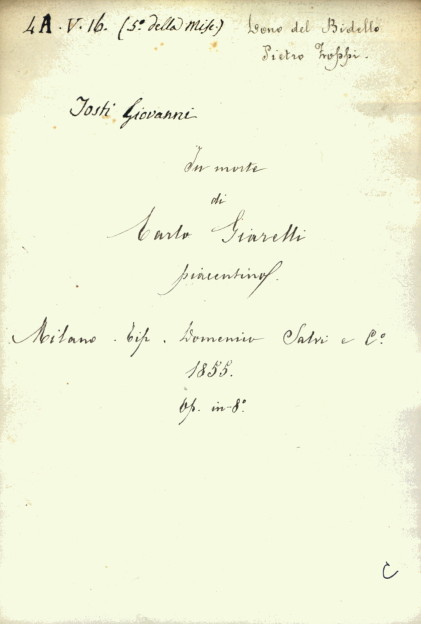 4A. V. 16. (5º della Misc.) Dono del Bidello
Pietro Zoppi.
Tosti Giovanni
In morte
di
Carlo Giarelli
piacentino.
Milano. Tip. Domenico Salvi e Cº
1855.
Op. in-8º
C